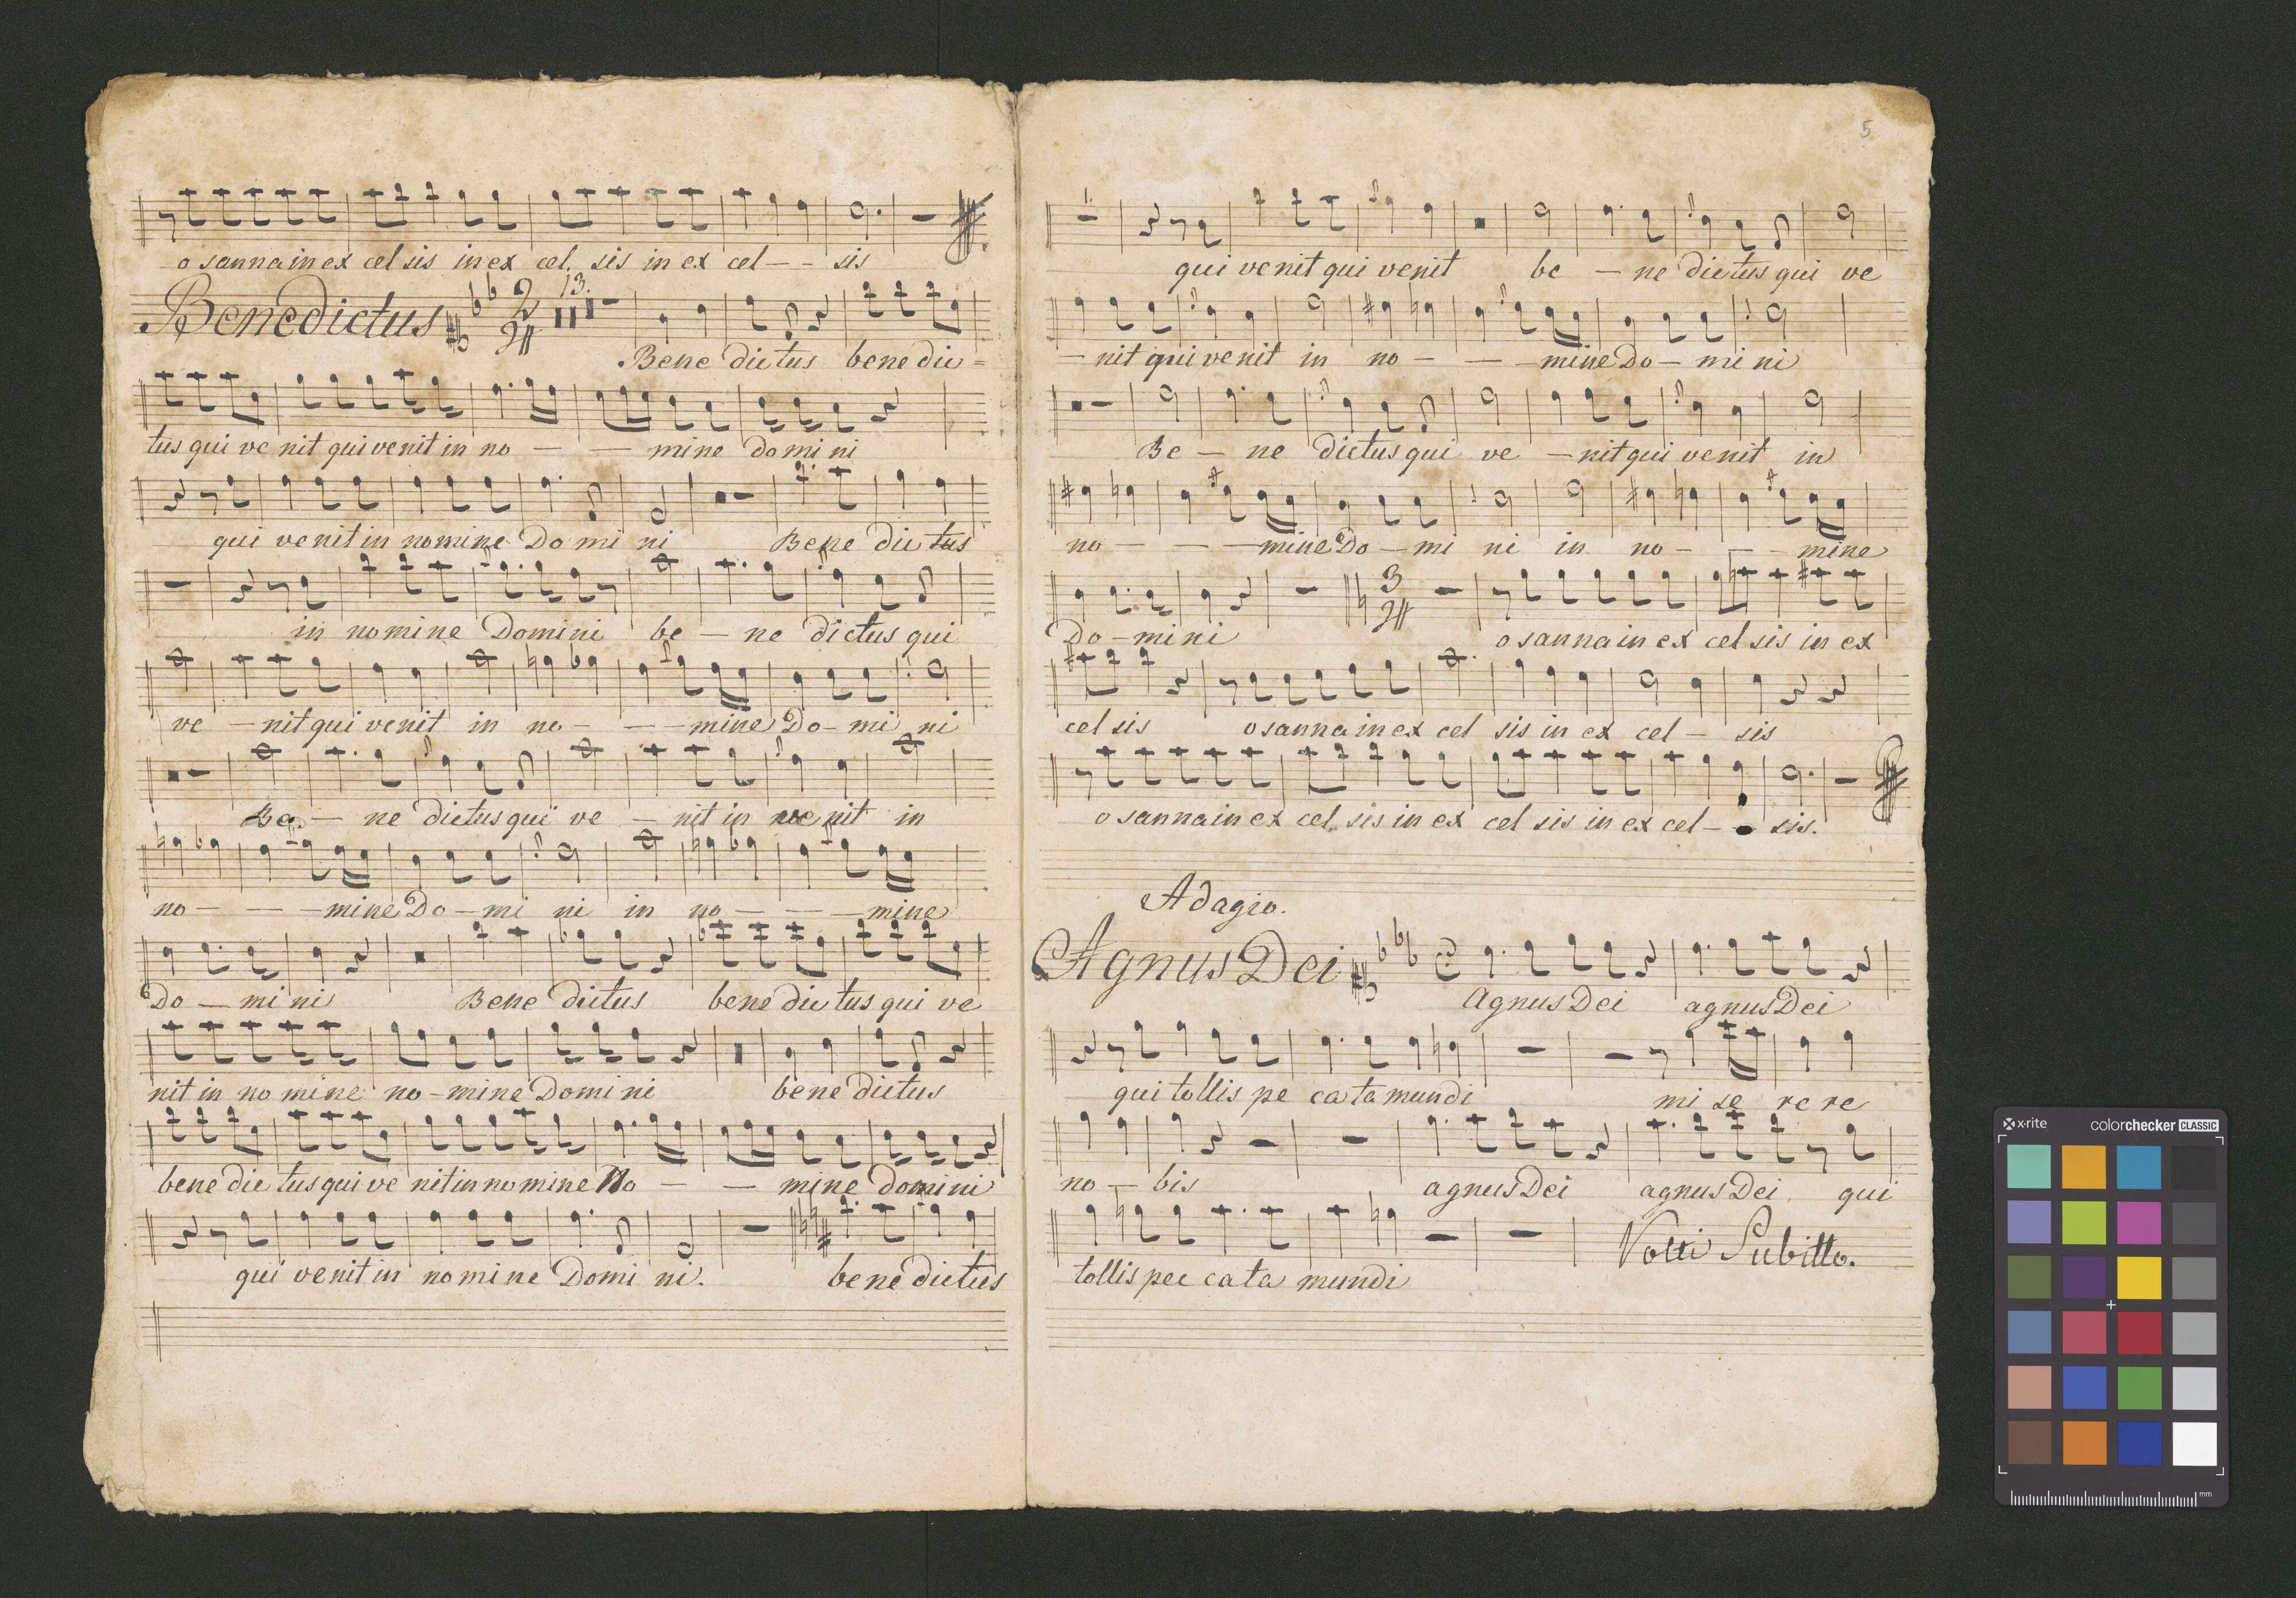 o sanna in ex cel sis in ex cel. sis in ex cel - - sis
Benedictus 2 4 13.
Bene dictus bene dic =
tus qui ve nit qui venit in no — — mine domi ni
qui ve nit in nomine Do mi ni Bene dic tus
in no mine Domini be — ne dictus qui
ve — nit qui venit in no - — — mine Do — mi ni
Be — ne dictus qui ve — nit in ve nit in
no — — — mine Do — mi ni in no — — — mine
Do — mi ni Bene dictus bene dic tus qui ve
nit in no mine no - mine Domi ni bene dictus
bene dic tus qui ve nit in no mine No — — mine domini
qui ve nit in no mi ne Domi ni. bene dictus
5
qui ve nit qui venit be — ne dictus qui ve
— nit qui ve nit in no — — — mine Do — mi ni
Be — ne dictus qui ve — nit qui venit in
no — — — mine Do — mi ni in no — — — mine
Do — mi ni 3 4 o sanna in ex cel sis in ex
cel sis o sanna in ex cel sis in ex cel — sis
o sanna in ex cel sis in ex cel sis in ex cel — sis.
Adagio.
Agnus Dei
Agnus Dei agnus Dei
qui tollis pe ca ta mundi mi se re re
no — bis agnus Dei agnus Dei qui
tollis pec ca ta mundi
Volti Subitto.
x-rite colorchecker CLASSIC
mm